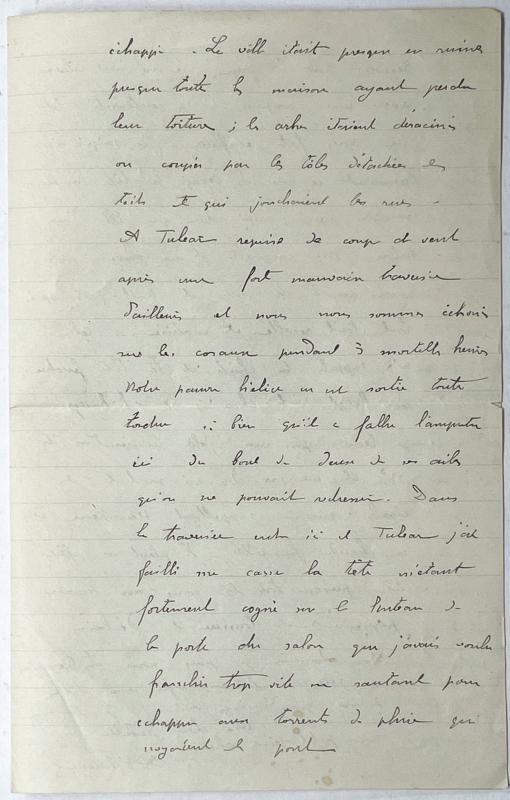 échappé. La ville était presque en ruines
presque toutes les maisons ayant perdu
leur toiture ; les arbres étaient déracinés
ou coupés par les tôles détachées des
toits et qui jonchaient les rues.
A Tulear reprise de coup de vent
après une fort mauvaise traversée
d'ailleurs et nous nous sommes échoués
sur les coraux pendant 3 mortelles heures
Notre pauvre hélice en est sortie toute
tordue si bien qu'il a fallu l'amputer
ici du bout de deux de ses ailes
qu'on ne pouvait redresser. Dans
la traversée entre ici et Tulear j'ai
failli me casser la tête m'étant
fortement cogné sur le linteau de
la porte du salon que j'avais voulu
franchir trop vite en sautant pour
échapper aux torrents de pluie qui
noyaient le pont